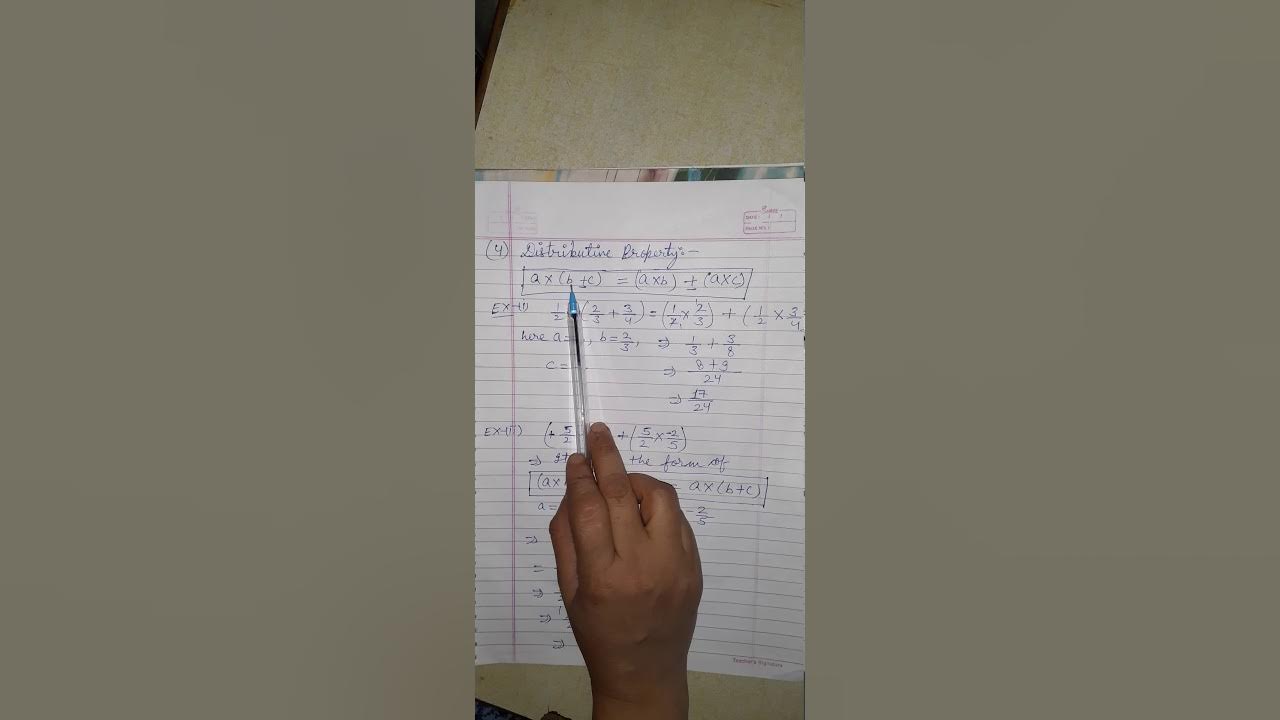 DATE: / /
PAGE NO.:
(4) Distributive Property:-
a×(b±c) = (a×b) ± (a×c)
EX-(i) 1/2 (2/3 + 3/4) = (1/2 × 2/3) + (1/2 × 3/4)
here a= , b=2/3, ⇒ 1/3 + 3/8
c= ⇒ 8+9/24
⇒ 17/24
EX-(ii) (+5/2 + (5/2 × -2/5)
⇒ the form of
(a× = a×(b+c)
a= -2/5
⇒
=
⇒
⇒
⇒
Teacher's Signature